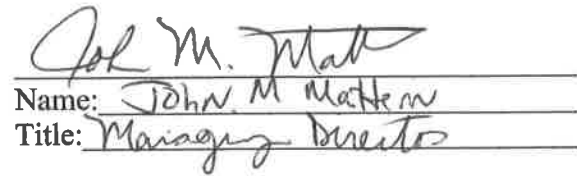 John M. Matt
Name: John M Mattern
Title: Managing Director